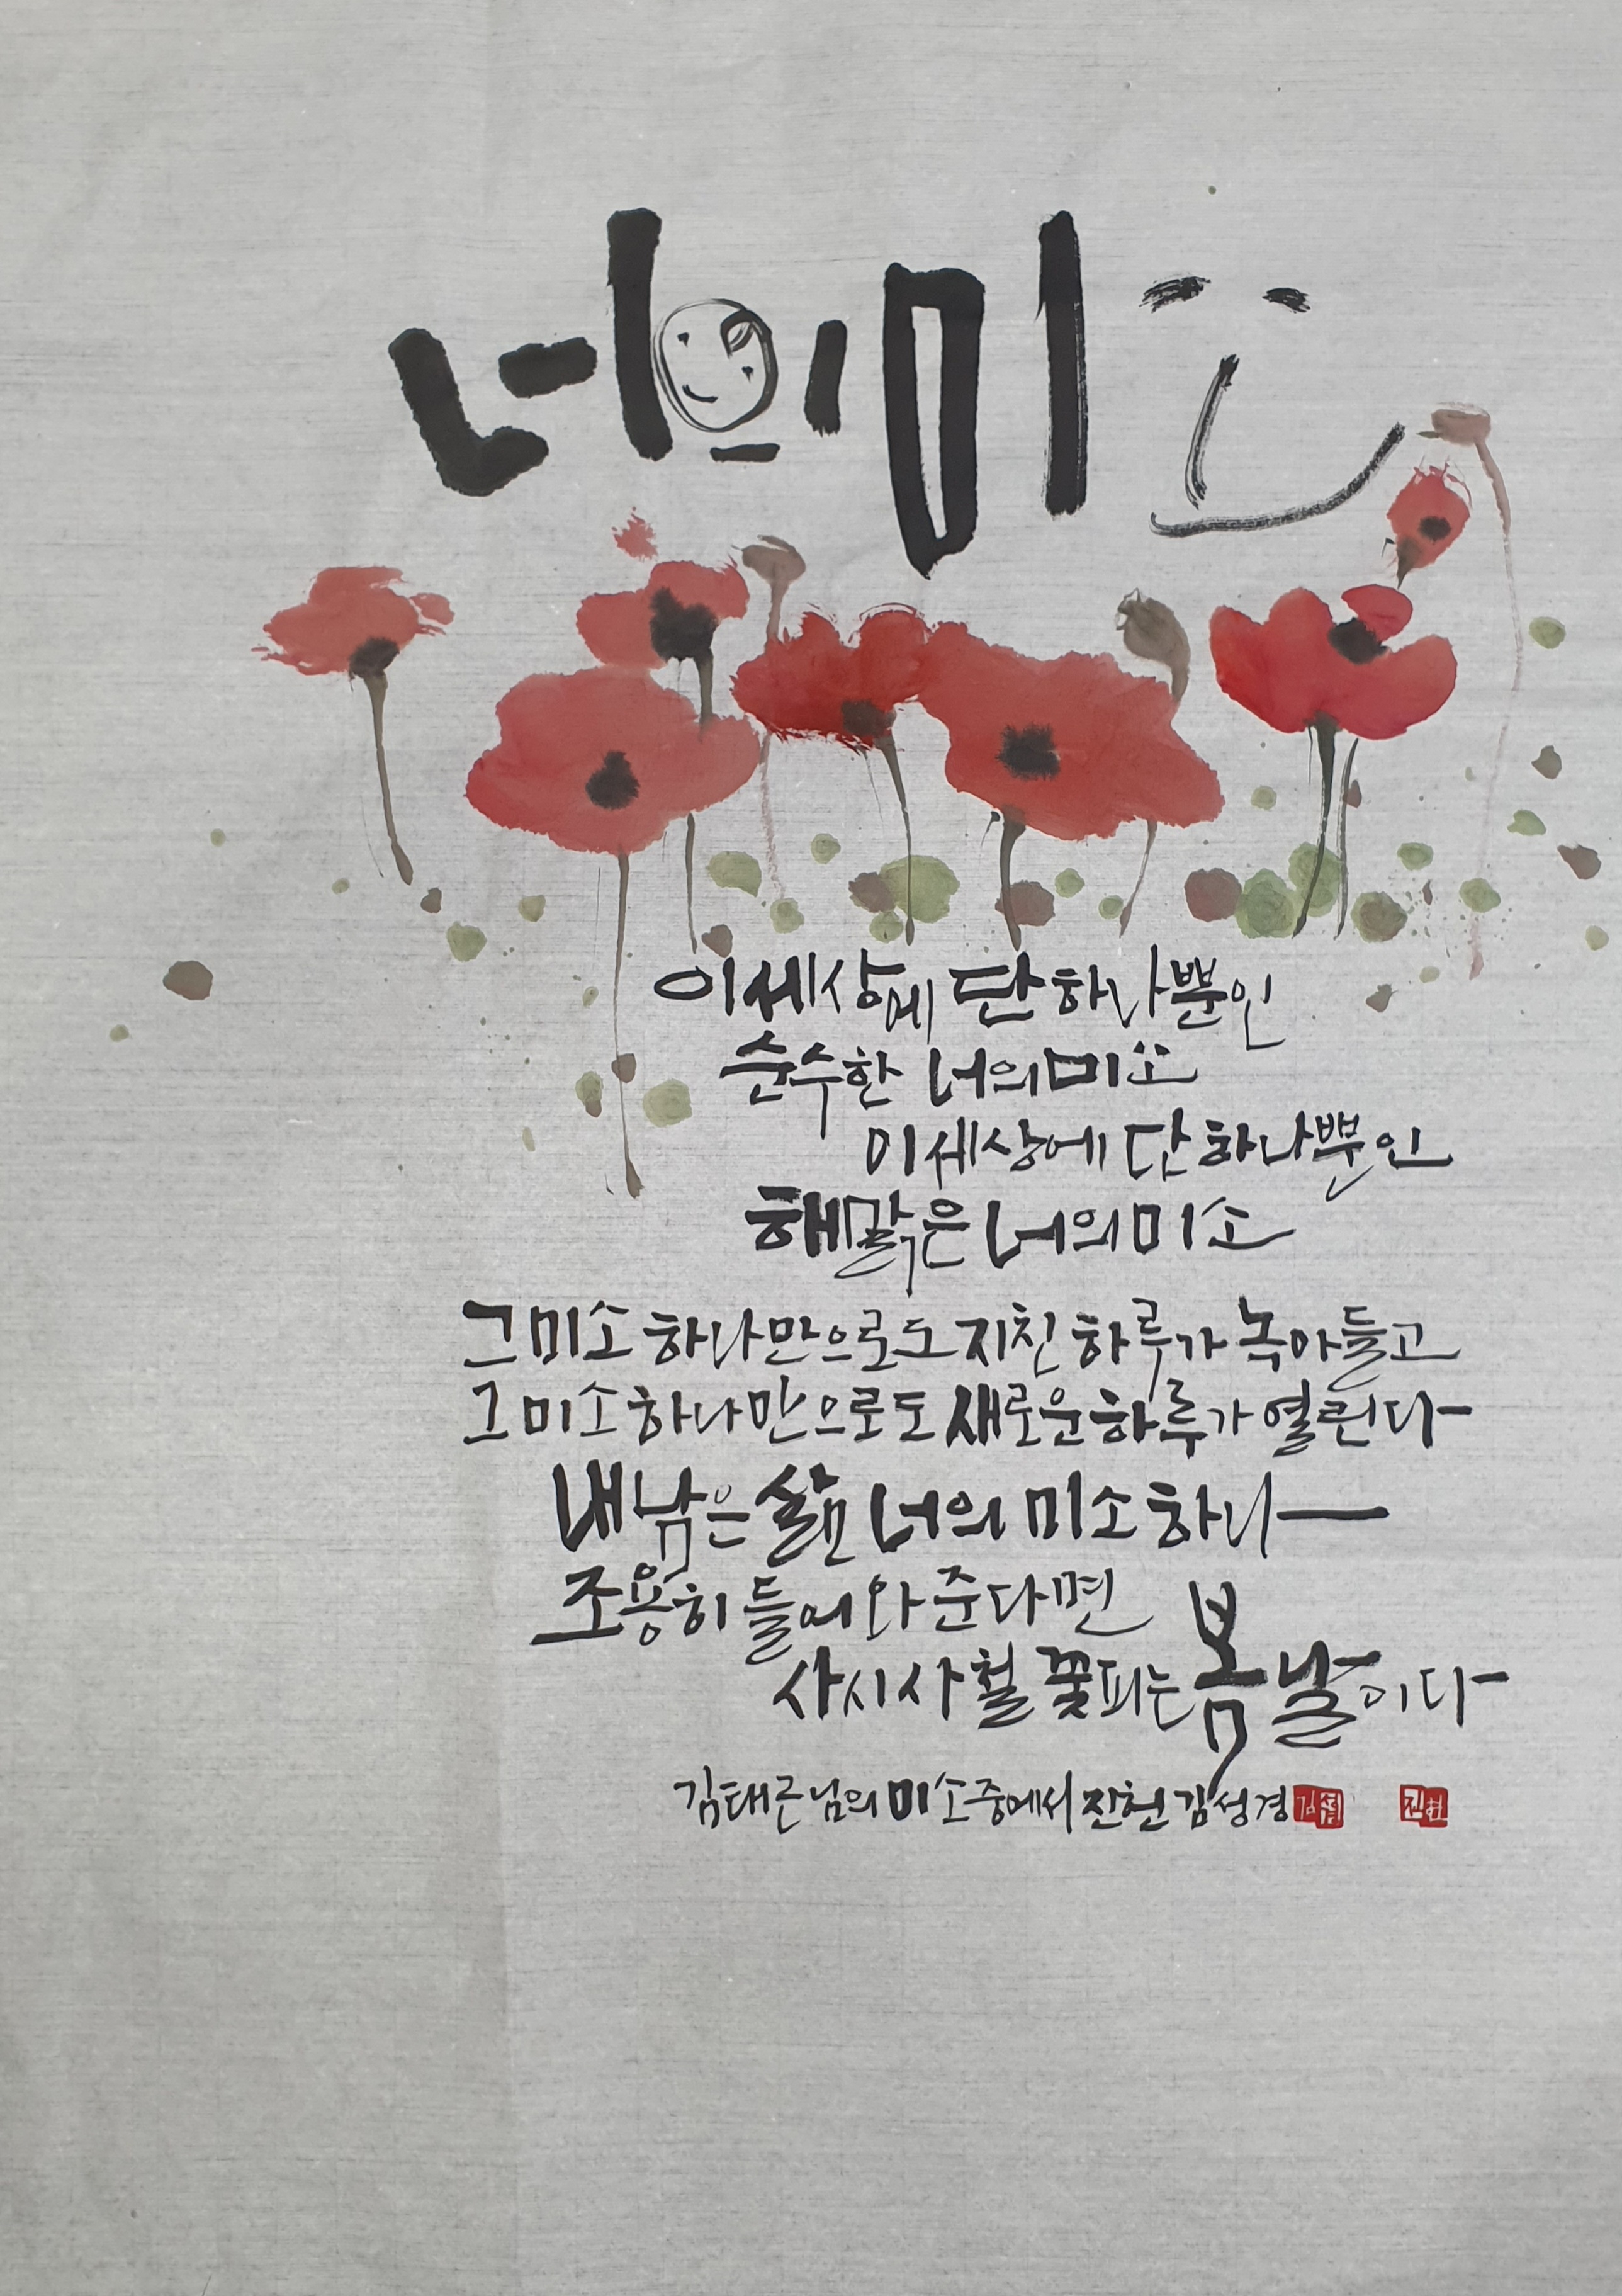 너의 미소
이 세상에 단 하나뿐인
순수한 너의 미소
이 세상에 단 하나뿐인
해맑은 너의 미소
그 미소 하나만으로도 지친 하루가 녹아들고
그 미소 하나만으로도 새로운 하루가 열린다
내 남은 삶 너의 미소 하나
조용히 들어와 준다면
사시사철 꽃피는 봄날이다
김태근님의 미소 중에서 진헌 김성경